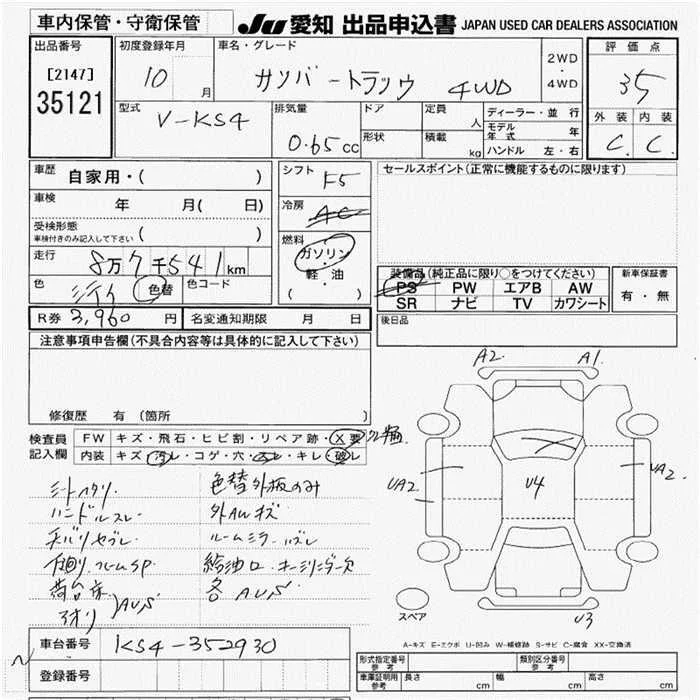 車内保管・守衛保管
JU 愛知 出品申込書 JAPAN USED CAR DEALERS ASSOCIATION
出品番号
[2147]
35121
初度登録年月
10 月
車名・グレード
サンバートラック 4WD
2WD
・
4WD
評価点
35
外装 内装
C. C.
型式
V-KS4
排気量
0.65 cc
ドア
形状
定員 人
積載 kg
ディーラー・並行
モデル年式 年
ハンドル 左・右
車歴 自家用・( )
車検 年 月( 日)
受検形態
車検付きのみ記入して下さい ( )
走行 8万7千541km
色 色替 色コード
シフト F5
冷房 AC
燃料
ガソリン
軽・油
( )
セールスポイント(正常に機能するものに限ります)
装備品(純正品に限り○をつけてください)
PS PW エアB AW
SR ナビ TV カワシート
新車保証書
有・無
後日品
R券 3,960円 名変通知期限 月 日
注意事項申告欄(不具合内容等は具体的に記入して下さい)
修復歴 有(箇所
検査員
記入欄
FW キズ・飛石・ヒビ割・リペア跡・X要
内装 キズ・汚レ・コゲ・穴・スレ・キレ・破レ
シートヘタリ
色替外板のみ
ハンドルスレ
外AWキズ
ルームミラーハズレ
下廻リ.フレームSP
荷台床
アオリ AU,S
各 AU,S
A2. A1
UA2. U4 UA2.
U3
スペア
A-キズ E-エクボ U-凹み W-補修跡 S-サビ C-腐食 XX-交換済
車台番号 KS4-352930
登録番号
形式指定番号 参考
類別区分番号 参考
車庫証明用 参考 長さ cm 幅 cm 高さ cm